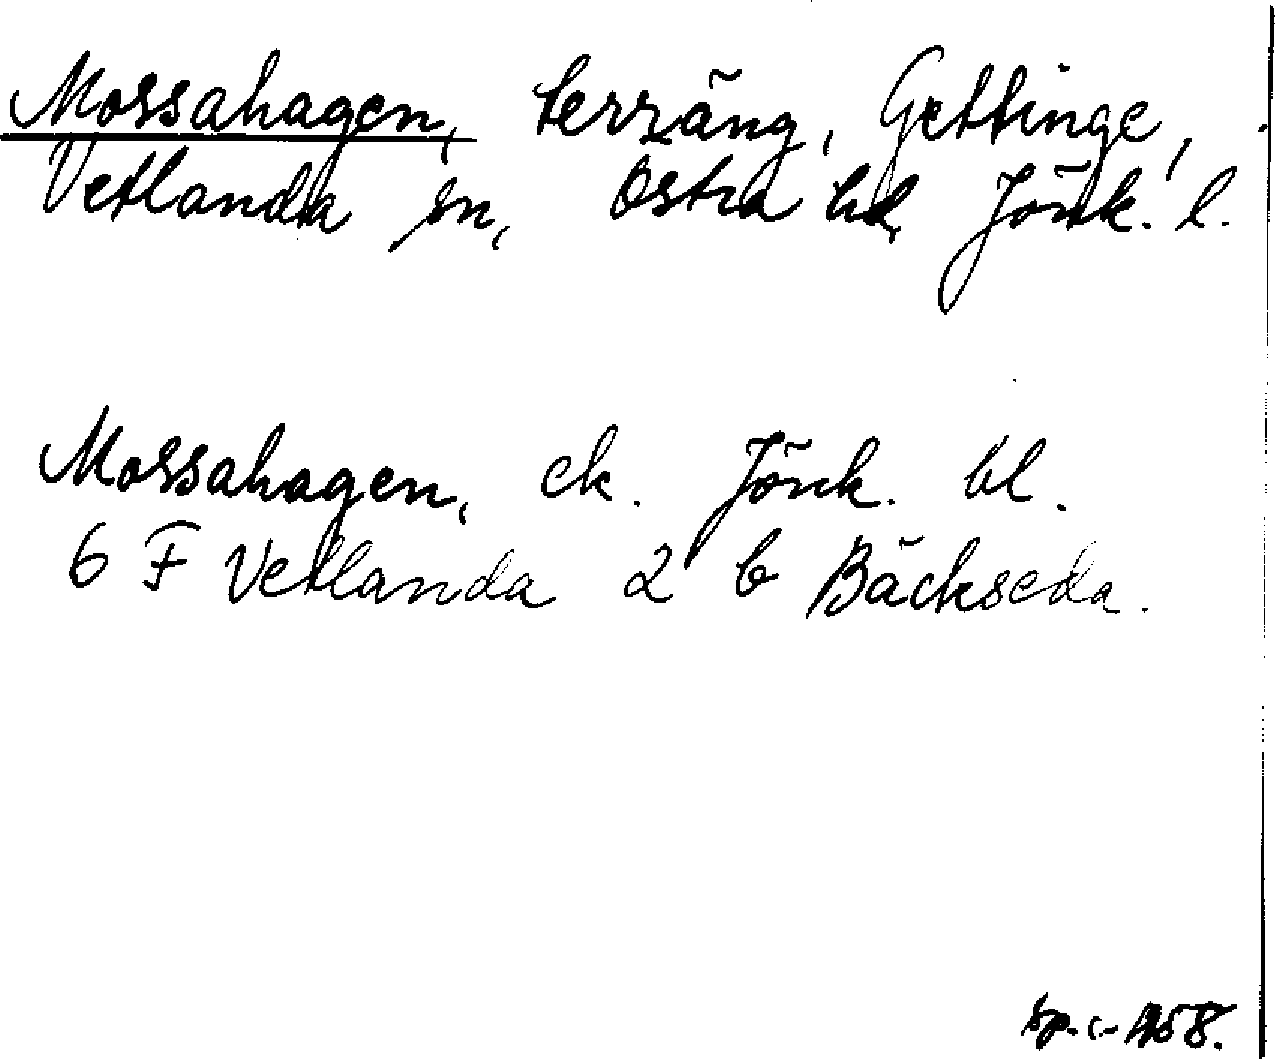 Mossahagen, terräng, Gettinge,
Vetlanda sn, Östra hd, Jönk. l.
Mossahagen, ek. Jönk. bl.
6 F Vetlanda 2 b Bäckseda.